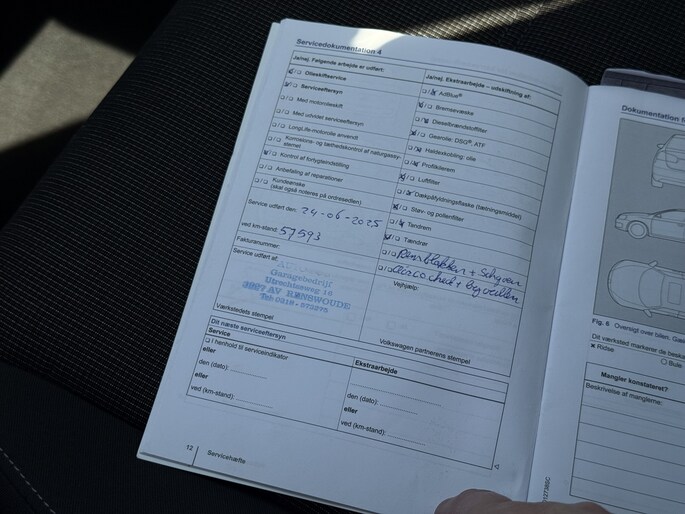 Servicedokumentation 4
Ja/nej. Følgende arbejde er udført:
Olieskiftservice
Serviceeftersyn
Med motorolieskift
Med udvidet serviceeftersyn
LongLife-motorolie anvendt
Korrosions- og tæthedskontrol af naturgassy-
stemet
Kontrol af forbyggende
Anbefaling af reparationer
Kundeønske
(skal også noteres på ordresedlen)
Service udført den: 24-06-2025
ved km-stand: 57593
Fakturanummer:
Service udført af:
Garagebedrijf
Utrechtseweg 18
3927 AV RENSWOUDE
Værkstedets stempel
Ja/nej. Ekstraarbejde – udskiftning af:
AdBlue®
Bremsevæske
Dieselbrændstoffilter
Gearolie: DSG®, ATF
Haldexkobling: olie
Profilkilerem
Luftfilter
Dækpåfyldningsflaske (tætningsmiddel)
Støv- og pollenfilter
Tandrem
Tændrør
Remblokken +
Airco check +
Vejhjælp:
Volkswagen partnerens stempel
Dit næste serviceeftersyn
Service
I henhold til serviceindikator
eller
den (dato):
eller
ved (km-stand):
Ekstraarbejde
den (dato):
eller
ved (km-stand):
12
Servicehæfte
Dokumentation f
Fig. 6 Oversigt over bilen.
Dit værksted markerer de beska
Ridse
Bule
Mangler konstateret?
Beskrivelse af manglerne: